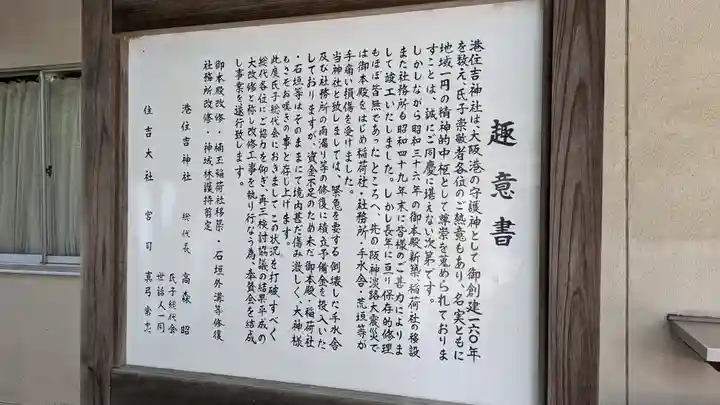 趣意書
港住吉神社は大阪港の守護神として御創建一六〇年
を数え、氏子崇敬者各位のご熱意もあり、名実ともに
地域一円の精神的中枢として尊崇を蒐められておりま
すことは、誠にご同慶に堪えない次第です。
しかしながら昭和三十六年の御本殿新築・稲荷社の移設
また社務所も昭和四十九年末に皆様のご甚力によりま
して竣工いたしました。しかし長年に亘り保存的修理
もほぼ皆無であったところへ、先の阪神淡路大震災で
は御本殿をはじめ稲荷社・社務所・手水舎・荒垣等が
手痛い損傷を受けました。
当神社と致しましては、緊急を要する倒壊した手水舎
及び社務所の雨漏り等の修復に積立予備金を投入いた
しておりますが、資金不足のため未だ御本殿・稲荷社
・石垣等はそのままにて境内甚だ傷み激しく、大神様
もさぞお嘆きの事と存じ上げます。
此度氏子総代会におきましてこの状況を打破すべく
総代各位にご協力を仰ぎ、再三検討協議の結果平成の
大改修と称し改修工事を執り行なう為、奉賛会を結成
し事業を遂行致します。
御本殿改修・楠玉稲荷社移築・石垣外溝等修復
社務所改修・神域林護持剪定
港住吉神社 総代長 高森 昭
氏子総代会
世話人一同
住吉大社 宮司 真弓 常忠